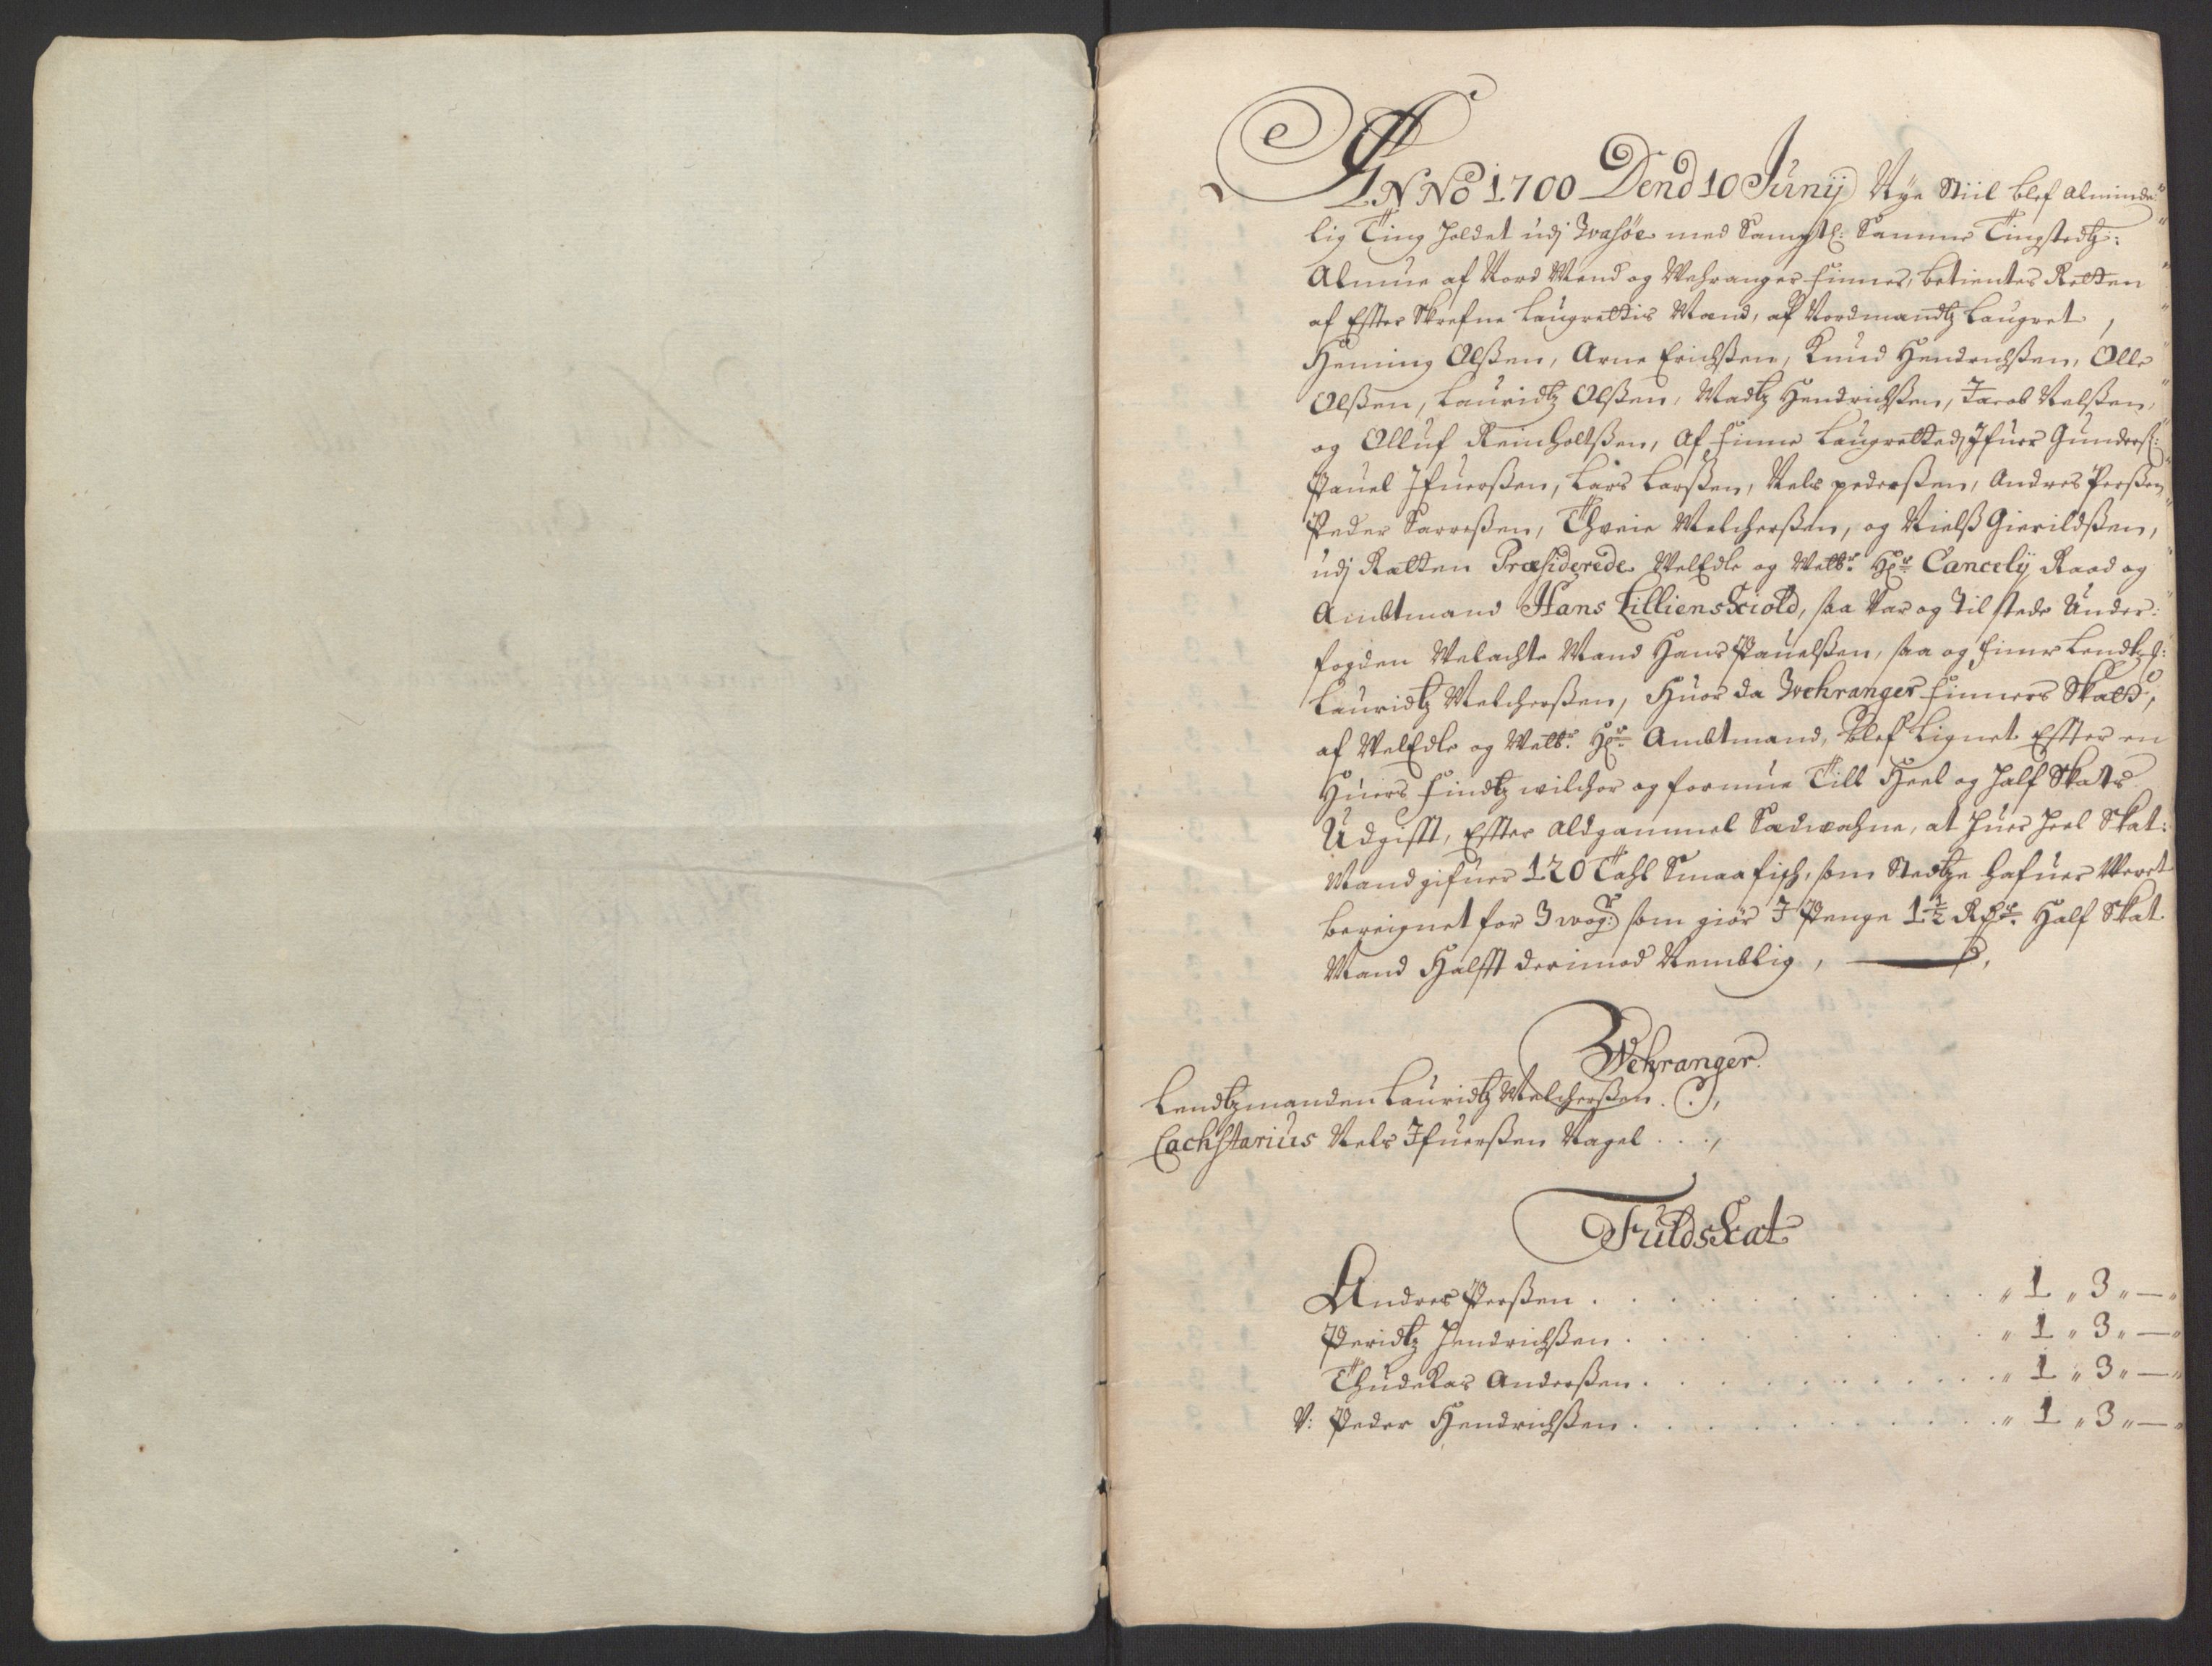 ANNo 1700 Dend 10 Junij Nye Stiil blef alminde:
lig Ting holdet udj Wasøe med Samptl: Samme Tingstedtz:
Almue af Nord Mend og Wehranger finner, betientes Retten
af Effter Skrefne Laugrettis Mænd, af Nordmandtz Laugret,
Heming Olßen, Arne Erichßen, Knud Hendrichßen, Olle
Olßen, Lauridtz Olßen, Madtz Hendrichßen, Jacob Nelßen,
og Olluf Reinholtßen, Af finne Laugretted, Ifuer Gunderß:
Pauel Ifuerßen, Lars Larßen, Nels pederßen, Andres Perßen
Peder Sarreßen, Thveie Melcherßen, og Nielß Gierildßen,
udj Rætten Præsiderede WelEdle og Welbr: Hr: Cancely Raad og
Ambtmand Hans Lilliensciold, saa War og Til stede Under:
fogden Welachte Mand Hans Pauelßen, saa og finne Lendtzm:
Lauridtz Melcherßen, Huor da Wehranger finners Skatt,
af WelEdle og Welbr: Hr: Ambtmand, blef Lignet Effter en
Huers findtz wilchor og formue Till Heel og half Skats
Udgifft, Effter aldgammel Sædwahne, at huer heel Skat:
Mand gifuer 120 Tahl Smaa fisch, som Stedtze hafuer Weret
bereignet for 3 wog: som giør J Penge 1½ Rdr: Half Skat
Mand Halfft derimod Nemblig,
Wehranger
Lendtzmanden Lauridtz Melcherßen . . ,
Cachstarius Nels Ifuerßen Nagel . . . ,
Fuldscat
Andres Perßen . . . . . . . . . . . . " 1 " 3 " — "
Peridtz Hendrichßen . . . . . . . . . . . . " 1 " 3 " — "
Thudekas Anderßen . . . . . . . . . . . . " 1 " 3 " — "
V: Peder Hendrichßen . . . . . . . . . . . . " 1 " 3 " — "